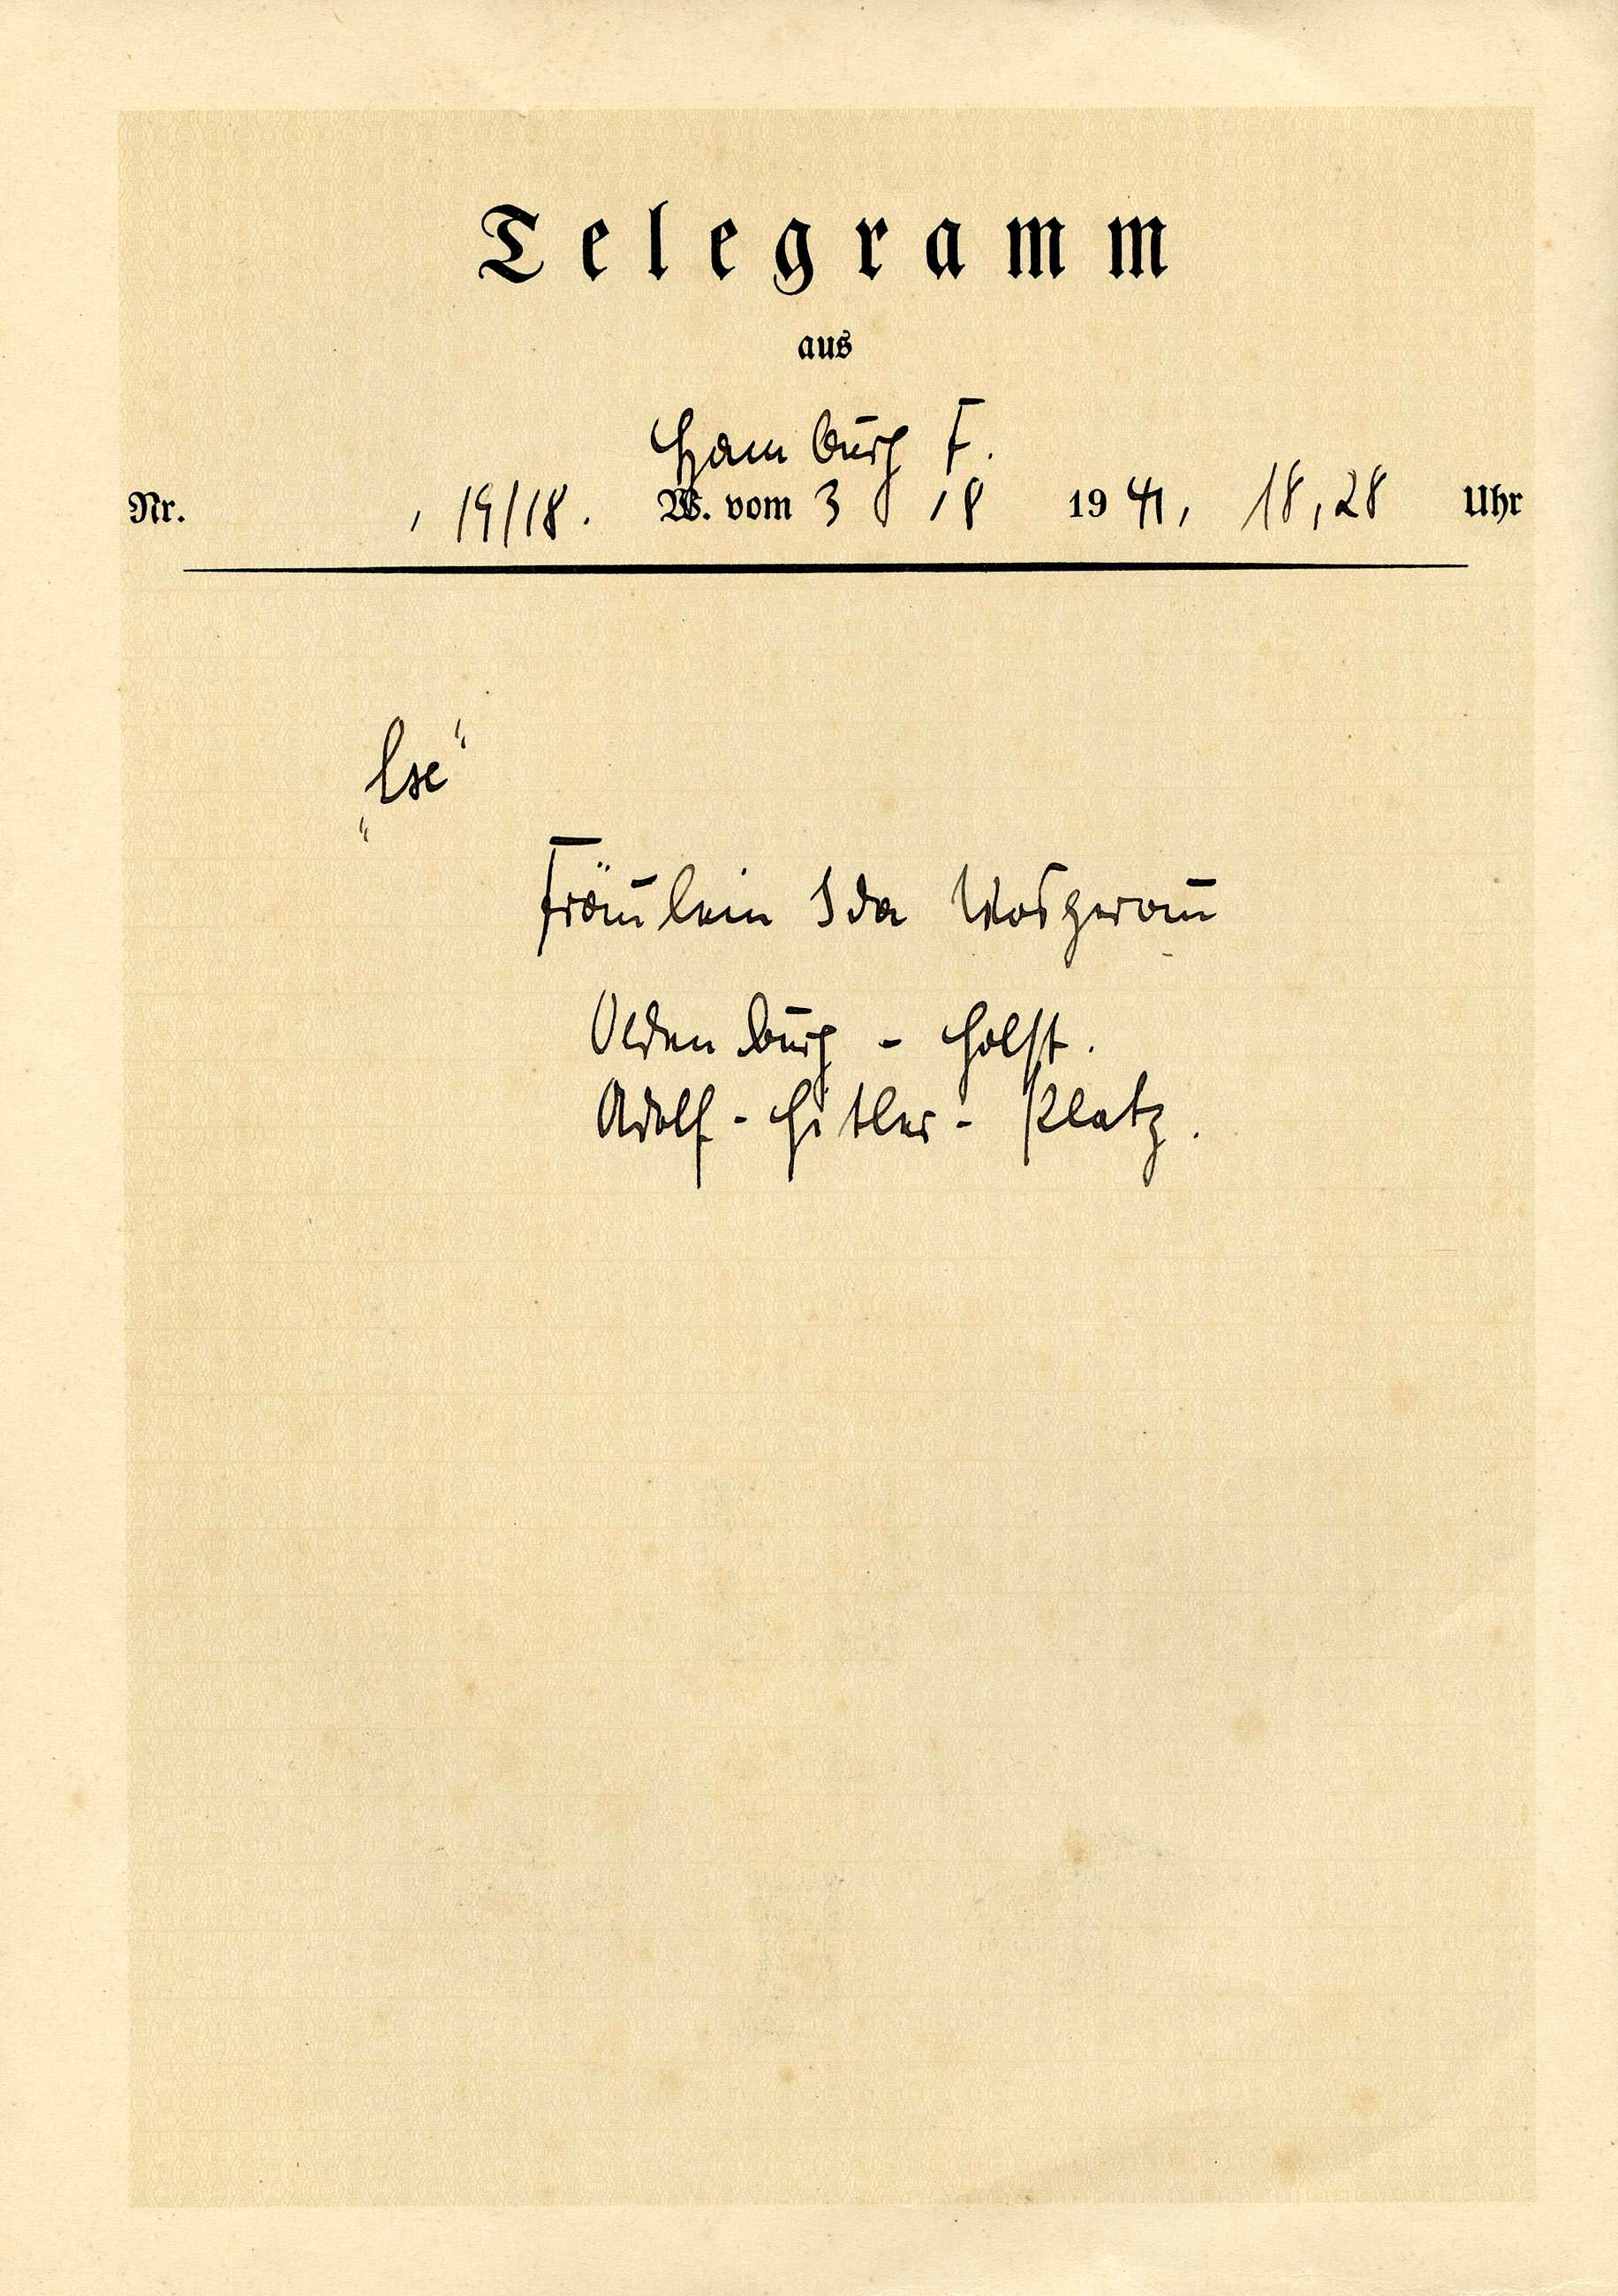 Telegramm
aus
Hamburg F.
Nr. , 19/18. W. vom 3 /8 1941, 18,28 Uhr
„lse“
Fräulein Ida Wosgerau
Oldenburg - Holst.
Adolf-Hitler-Platz.